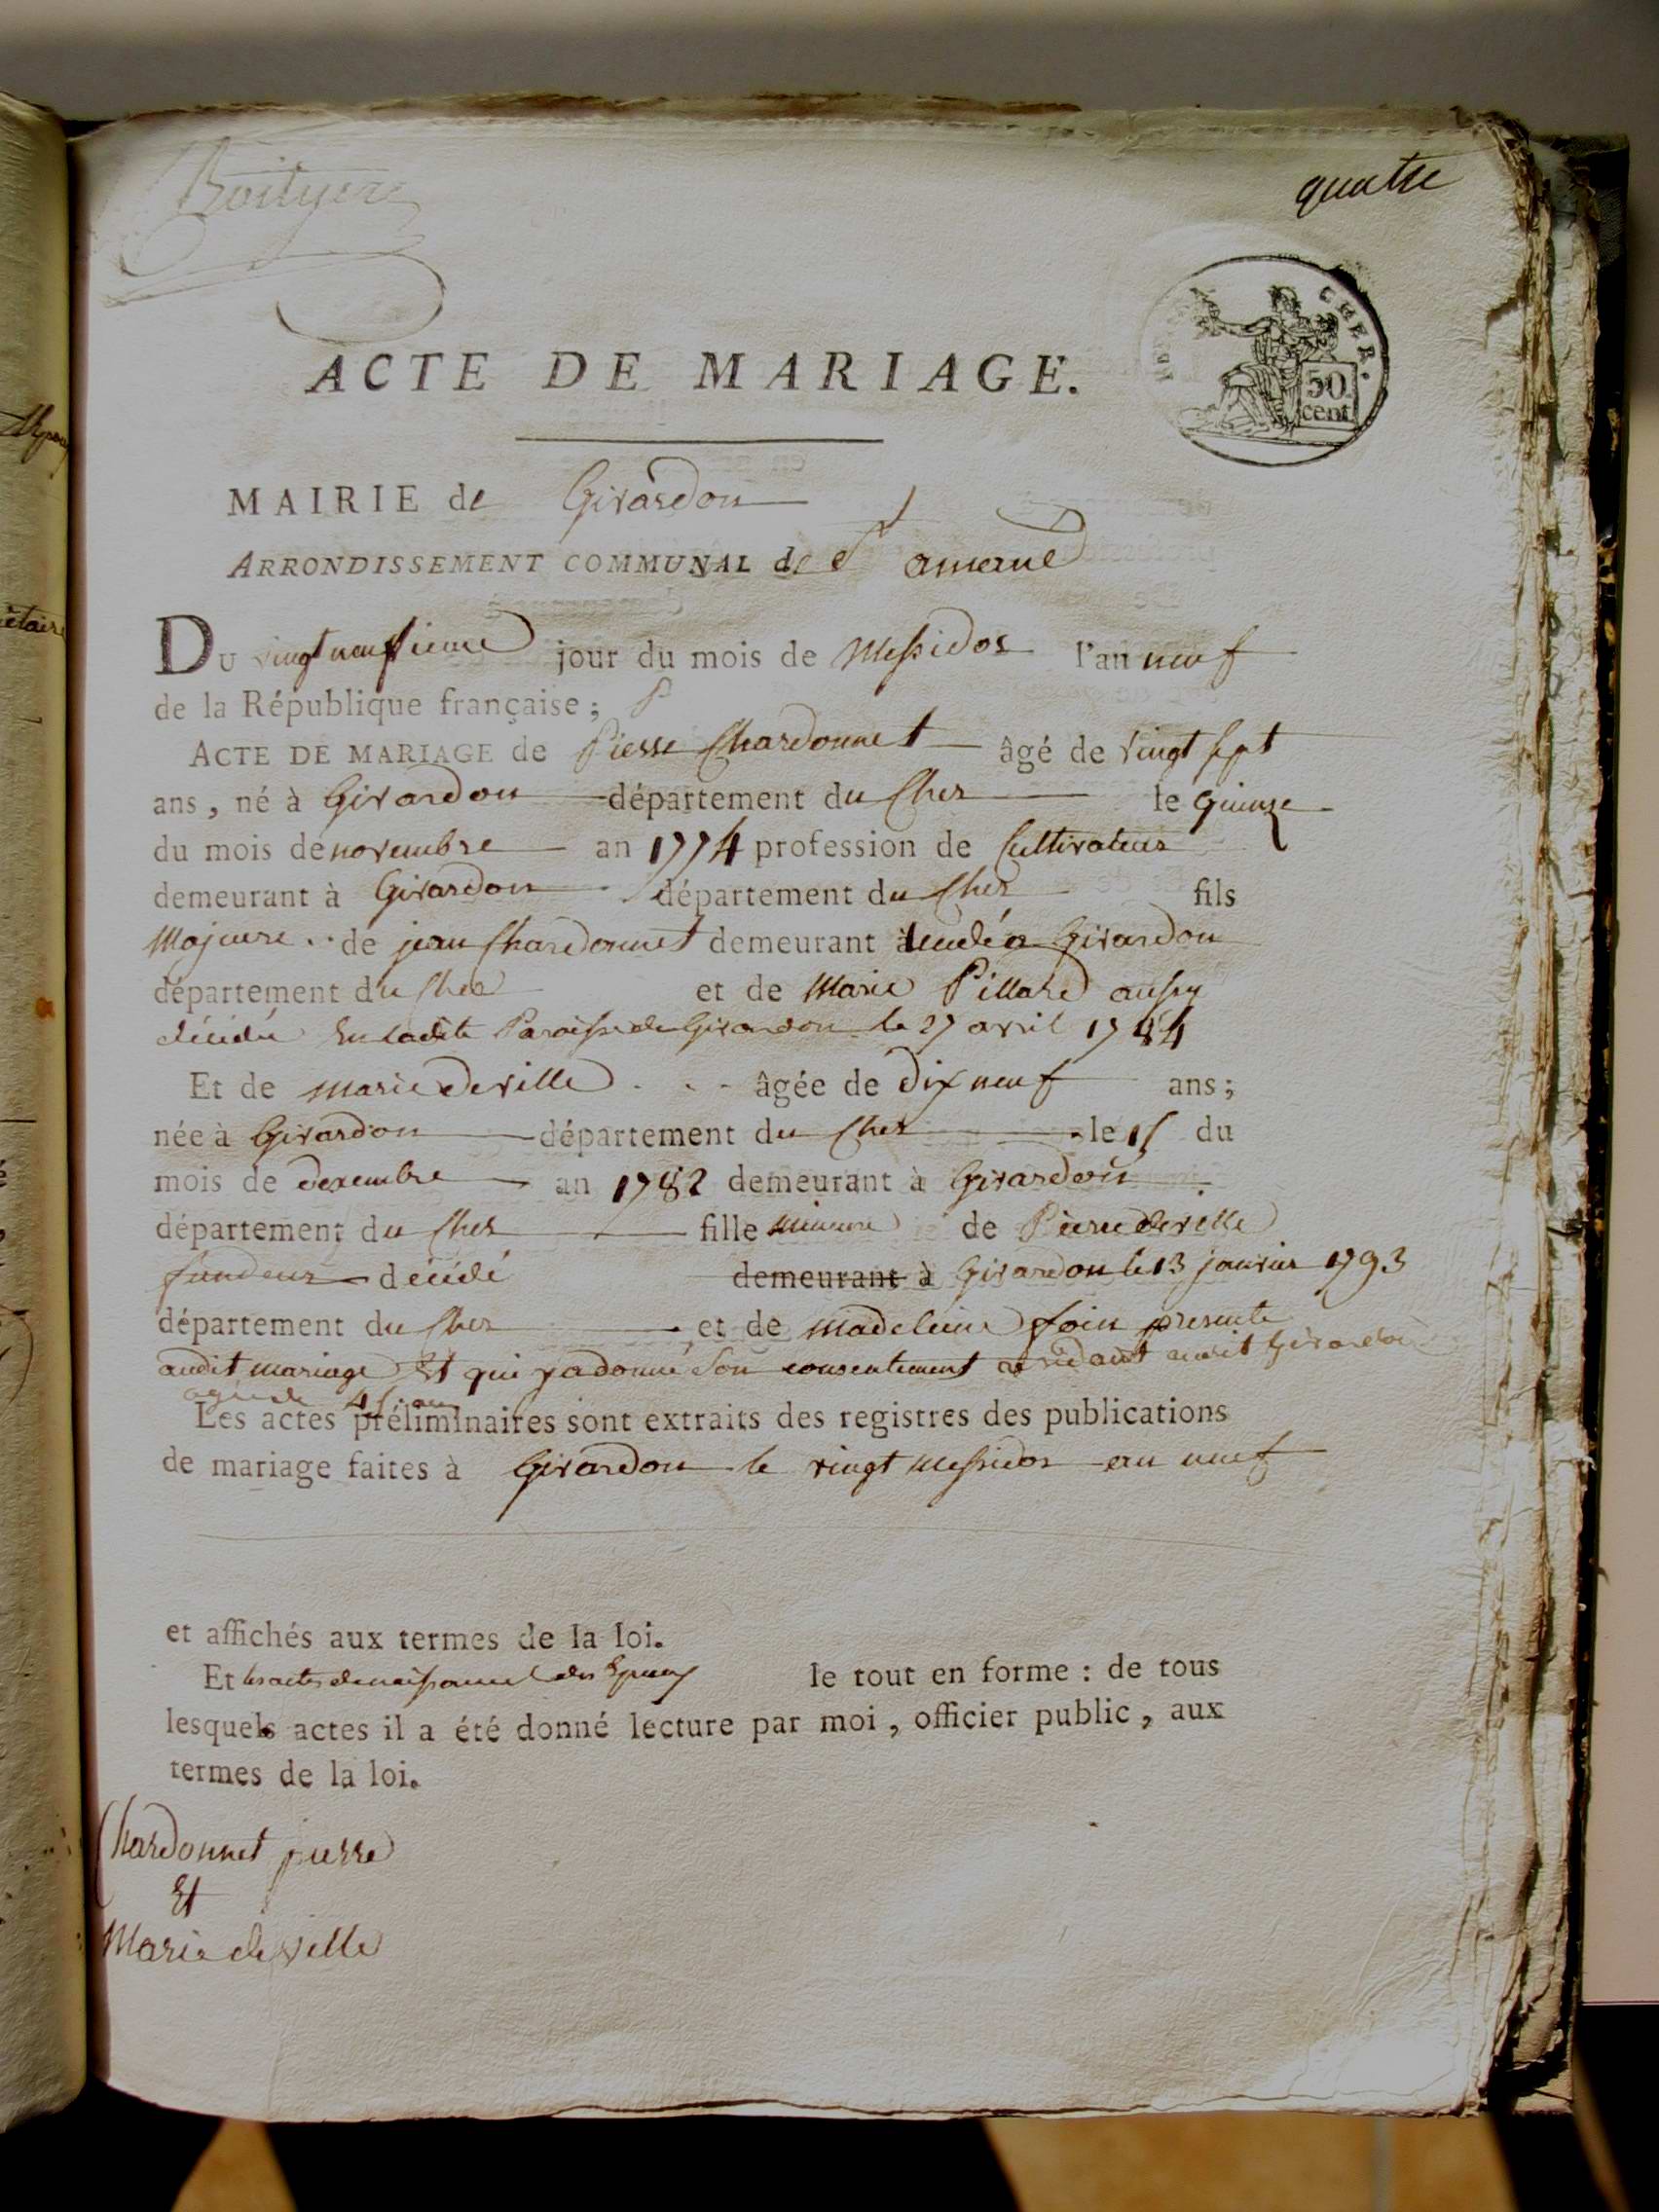 quatre
CHER.
50 cent.
ACTE DE MARIAGE.
MAIRIE de Girardon
ARRONDISSEMENT COMMUNAL de St amand
DU vingt neufvieme jour du mois de Messidor l'an neuf
de la République française ;
ACTE DE MARIAGE de Pierre Chardonnet âgé de vingt sept
ans , né à Girardon département du Cher le quinze
du mois de novembre an 1774 profession de Cultivateur
demeurant à Girardon département du Cher fils
Majeure de jean Chardonnet demeurant Girardon
département du Cher et de Marie Pillard aussy
décédée en ladite Paroisse de Girardon le 27 avril 1784
Et de marie deville âgée de dix neuf ans ;
née à Girardon département du Cher le 15 du
mois de decembre an 1782 demeurant à Girardon
département du Cher fille mineure de Pierre deville
fendeur décédé demeurant à Girardon le 13 janvier 1793
département du Cher et de madeleine foin presente
audit mariage Et qui y a donné Son consentement residant audit Girardon
agée de 45 ans
Les actes préliminaires sont extraits des registres des publications
de mariage faites à Girardon le vingt messidor an neuf
et affichés aux termes de la loi.
Et les actes de naissance des Epoux le tout en forme : de tous
lesquels actes il a été donné lecture par moi , officier public , aux
termes de la loi.
Chardonnet pierre
Et
Marie deville